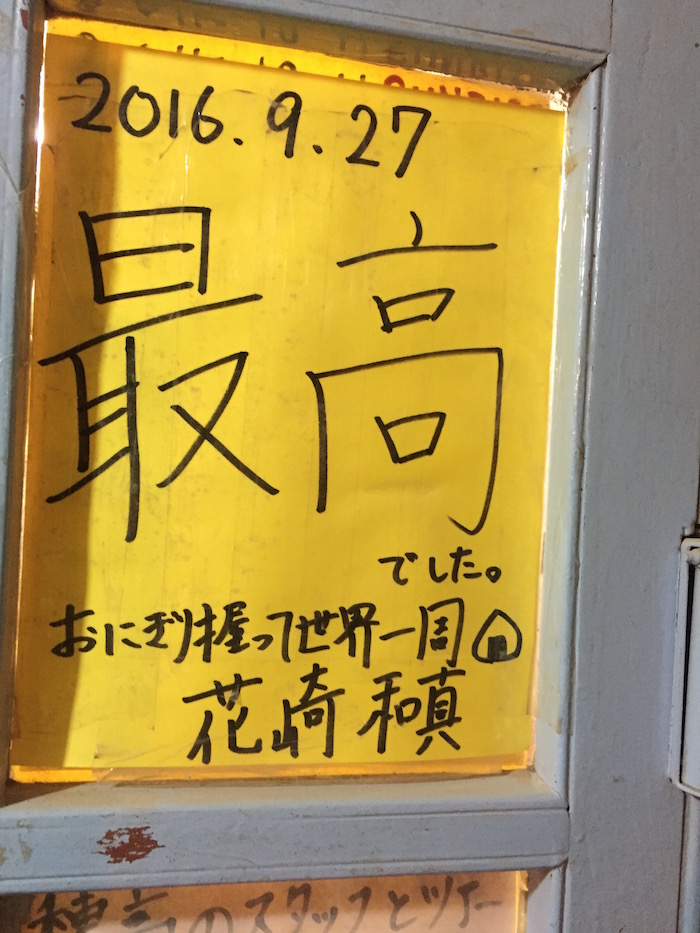 2016.9.27
最高
でした。
おにぎり握って世界一周
花崎 和真
のスタッフとツー